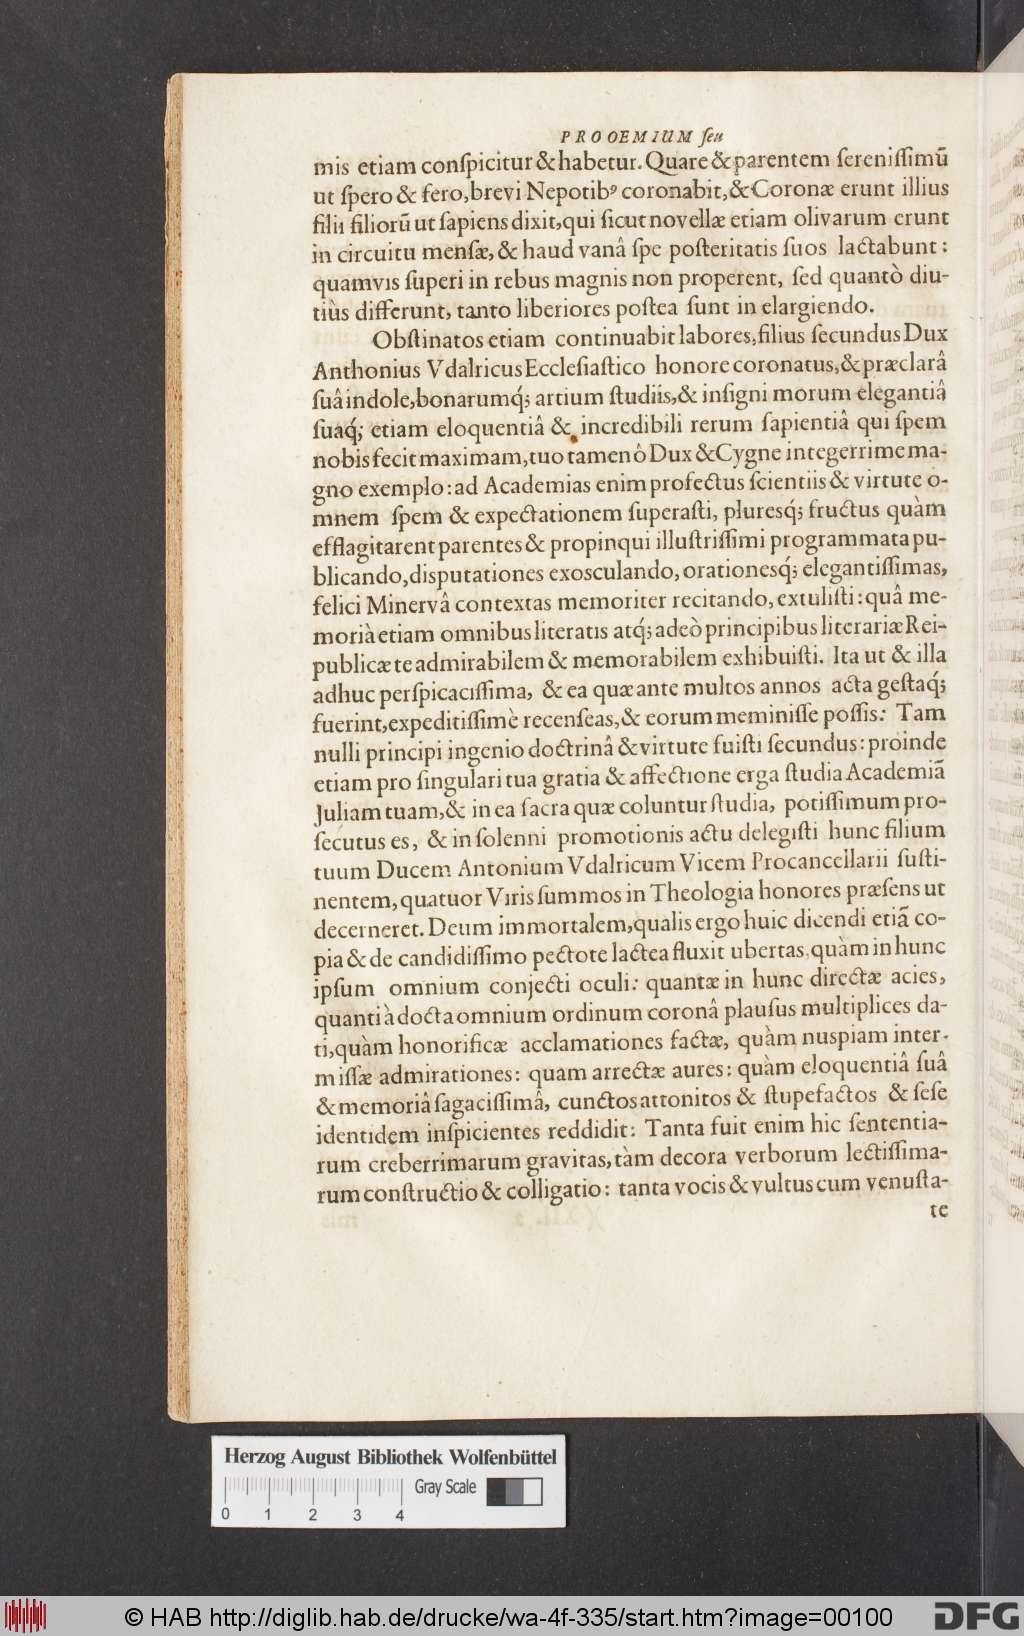 PROOEMIUM ſeu
mis etiam conſpicitur & habetur. Quare & parentem ſereniſſimū
ut ſpero & fero, brevi Nepotibꝰ coronabit, & Coronæ erunt illius
filii filiorū ut ſapiens dixit, qui ſicut novellæ etiam olivarum erunt
in circuitu menſæ, & haud vanâ ſpe poſteritatis ſuos lactabunt:
quamvis ſuperi in rebus magnis non properent, ſed quantò diu-
tiùs differunt, tanto liberiores poſtea ſunt in elargiendo.
Obſtinatos etiam continuabit labores, filius ſecundus Dux
Anthonius Vdalricus Eccleſiaſtico honore coronatus, & præclarâ
ſuâ indole, bonarumq́; artium ſtudiis, & inſigni morum elegantiâ
ſuaq́; etiam eloquentiâ & incredibili rerum ſapientiâ qui ſpem
nobis fecit maximam, tuo tamen ô Dux & Cygne integerrime ma-
gno exemplo: ad Academias enim profectus ſcientiis & virtute o-
mnem ſpem & expectationem ſuperaſti, pluresq́; fructus quàm
efflagitarent parentes & propinqui illuſtriſſimi programmata pu-
blicando, diſputationes exosculando, orationesq́; elegantiſſimas,
felici Minervâ contextas memoriter recitando, extuliſti: quâ me-
morià etiam omnibus literatis atq́; adeò principibus literariæ Rei-
publicæ te admirabilem & memorabilem exhibuiſti. Ita ut & illa
adhuc perſpicaciſſima, & ea quæ ante multos annos acta geſtaq́;
fuerint, expeditiſſimè recenſeas, & eorum meminiſſe poſſis: Tam
nulli principi ingenio doctrinâ & virtute fuiſti ſecundus: proinde
etiam pro ſingulari tua gratia & affectione erga ſtudia Academiā
Juliam tuam, & in ea ſacra quæ coluntur ſtudia, potiſſimum pro-
ſecutus es, & in ſolenni promotionis actu delegiſti hunc filium
tuum Ducem Antonium Vdalricum Vicem Procancellarii ſuſti-
nentem, quatuor Viris ſummos in Theologia honores præſens ut
decerneret. Deum immortalem, qualis ergo huic dicendi etiā co-
pia & de candidiſſimo pectore lactea fluxit ubertas, quàm in hunc
ipſum omnium conjecti oculi: quantæ in hunc directæ acies,
quanti à docta omnium ordinum coronâ plauſus multiplices da-
ti, quàm honorificæ acclamationes factæ, quàm nuspiam inter-
miſſæ admirationes: quam arrectæ aures: quàm eloquentiâ ſuâ
& memoriâ ſagaciſſimâ, cunctos attonitos & ſtupefactos & ſeſe
identidem inſpicientes reddidit: Tanta fuit enim hic ſententia-
rum creberrimarum gravitas, tàm decora verborum lectiſſima-
rum conſtructio & colligatio: tanta vocis & vultus cum venuſta-
te
Herzog August Bibliothek Wolfenbüttel
Gray Scale
0 1 2 3 4
© HAB http://diglib.hab.de/drucke/wa-4f-335/start.htm?image=00100
DFG